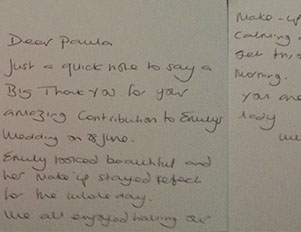 Dear Paula
Just a quick note to say a
Big Thank You for your
amazing Contribution to Emily's
Wedding on 8 June.
Emily looked beautiful and
her Make up stayed perfect
for the whole day.
We all enjoyed having our
Make-up
Calming
get
Morning.
You are
lady